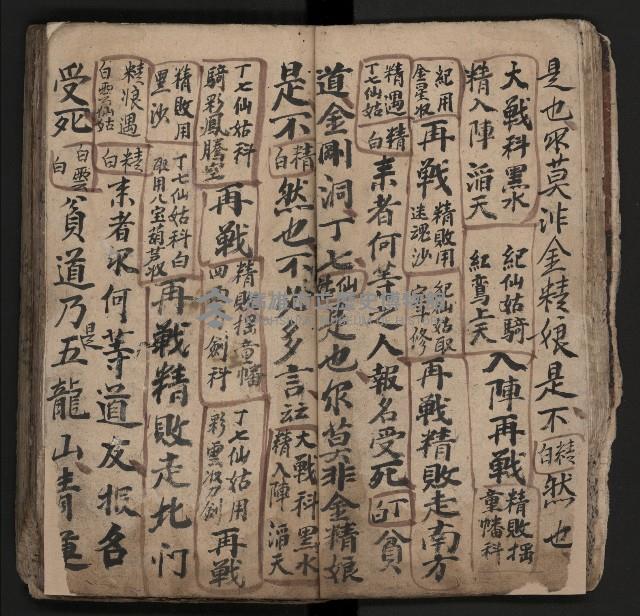 是也尔莫非金精娘是不 精白 然也
大戰科黑水精入陣滔天 紀仙姑騎紅鸞上天 入陣再戰 精敗搖童幡科
紀用金星收 再戰 精敗用迷魂沙 紀仙姑取 再戰精敗走南方
精遇丁七仙姑 精白 来者何等之人報名受死 丁白 貧
道金剛洞丁七仙姑是也尔莫非金精娘
是不 精白 然也不必多言 大戰科黑水精入陣滔天
丁七仙姑科騎彩鳳騰空 再戰 精敗搖童幡四劍科 丁七仙姑用彩雲收刀劍 再戰
精敗用黑沙 丁七仙姑科白取用八宝葫芦收 再戰精敗走北门
精娘遇白雲仙姑 精白 来者尔何等道友報名
受死 白雲白 貧道乃是五龍山青蓮
高雄市立歷史博物館